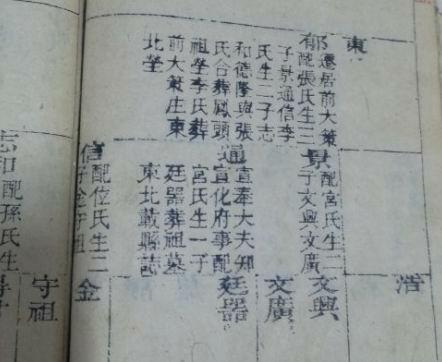 東
郁遷居前大策
配張氏生三
子景通信李
氏生二子志
和德隆與張
氏合葬鳳頭
祖塋李氏葬
前大策庄東
北塋
景配宮氏生二
子文興文廣
通宣奉大夫知
宣化府事配
宮氏生一子
廷器葬祖墓
東北載縣誌
信配位氏生二
子金守祖
志和配孫氏生
浩
文興
文廣
廷器
金
守祖